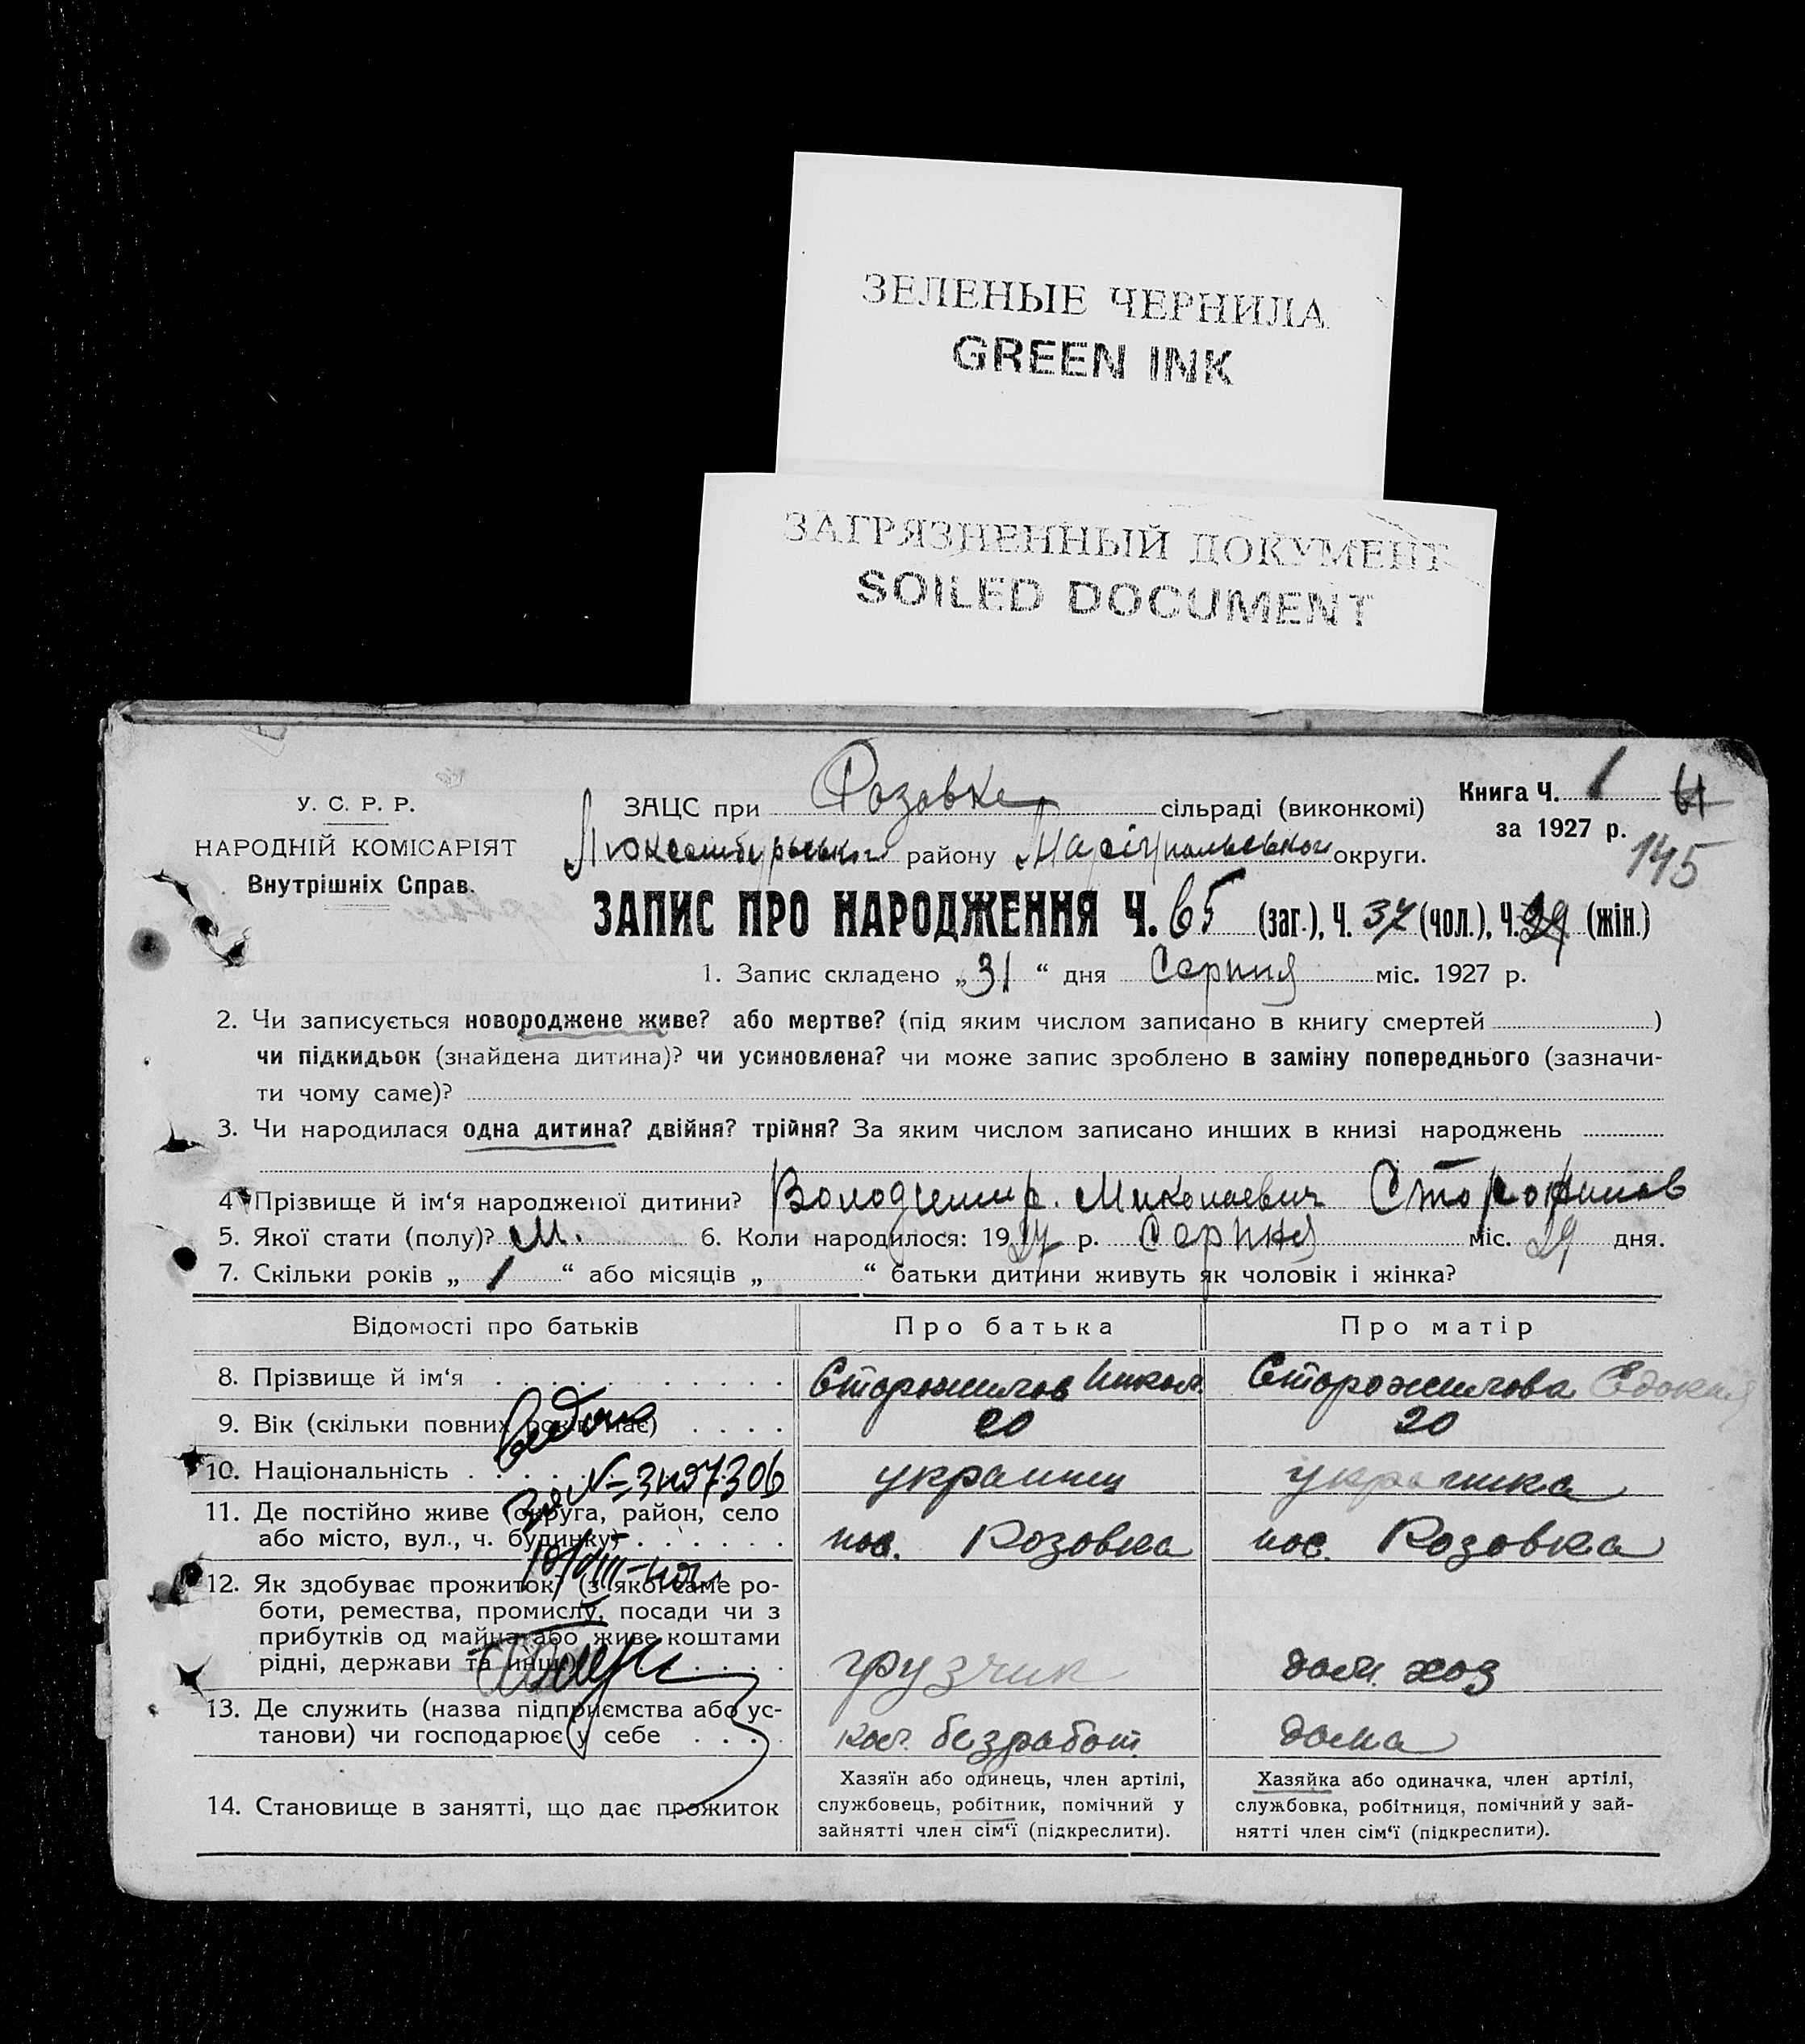 ЗЕЛЕНЫЕ ЧЕРНИЛА
GREEN INK
ЗАГРЯЗНЕННЫЙ ДОКУМЕНТ
SOILED DOCUMENT
У. С. Р. Р.
НАРОДНІЙ КОМІСАРІЯТ
Внутрішніх Справ.
ЗАЦС при Розовке сільраді (виконкомі)
Люксембурського району Маріупольського округи.
Книга Ч. 1
за 1927 р.
145
ЗАПИС ПРО НАРОДЖЕННЯ Ч. 65 (заг.), Ч. 37 (чол.), Ч. (жін.)
1. Запис складено „31“ дня Серпня міс. 1927 р.
2. Чи записується новороджене живе? або мертве? (під яким числом записано в книгу смертей )
чи підкидьок (знайдена дитина)? чи усиновлена? чи може запис зроблено в заміну попереднього (зазначи-
ти чому саме)?
3. Чи народилася одна дитина? двійня? трійня? За яким числом записано инших в книзі народжень
4. Прізвище й ім‘я народженої дитини? Володимир. Миколаевич Сторожилов
5. Якої стати (полу)? М. 6. Коли народилося: 1927 р. Серпня міс. 29 дня.
7. Скільки років „ 1 “ або місяців „ “ батьки дитини живуть як чоловік і жінка?
Відомості про батьків Про батька Про матір
8. Прізвище й ім‘я Сторожилов Никол. Сторожилова Евдокия
9. Вік (скільки повних років має) 20 20
10. Національність украинец украинка
11. Де постійно живе (округа, район, село
або місто, вул., ч. будинку) пос. Розовка пос. Розовка
12. Як здобуває прожиток? (з якої саме ро-
боти, ремества, промислу, посади чи з
прибутків од майна або живе коштами
рідні, держави та инш.) грузчик дом. хоз
13. Де служить (назва підприємства або ус-
танови) чи господарює у себе безработ. дома
14. Становище в занятті, що дає прожиток
Хазяїн або одинець, член артілі,
службовець, робітник, помічний у
зайнятті член сім‘ї (підкреслити).
Хазяйка або одиначка, член артілі,
службовка, робітниця, помічний у зай-
нятті член сім‘ї (підкреслити).